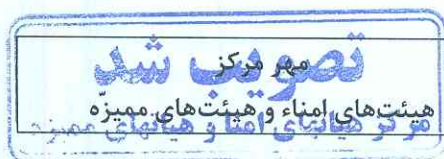 تصویب شد
مهر مرکز
هیئت‌های امناء و هیئت‌های ممیزّه
مرکز هیأتهای امنا و هیأتهای ممیزه